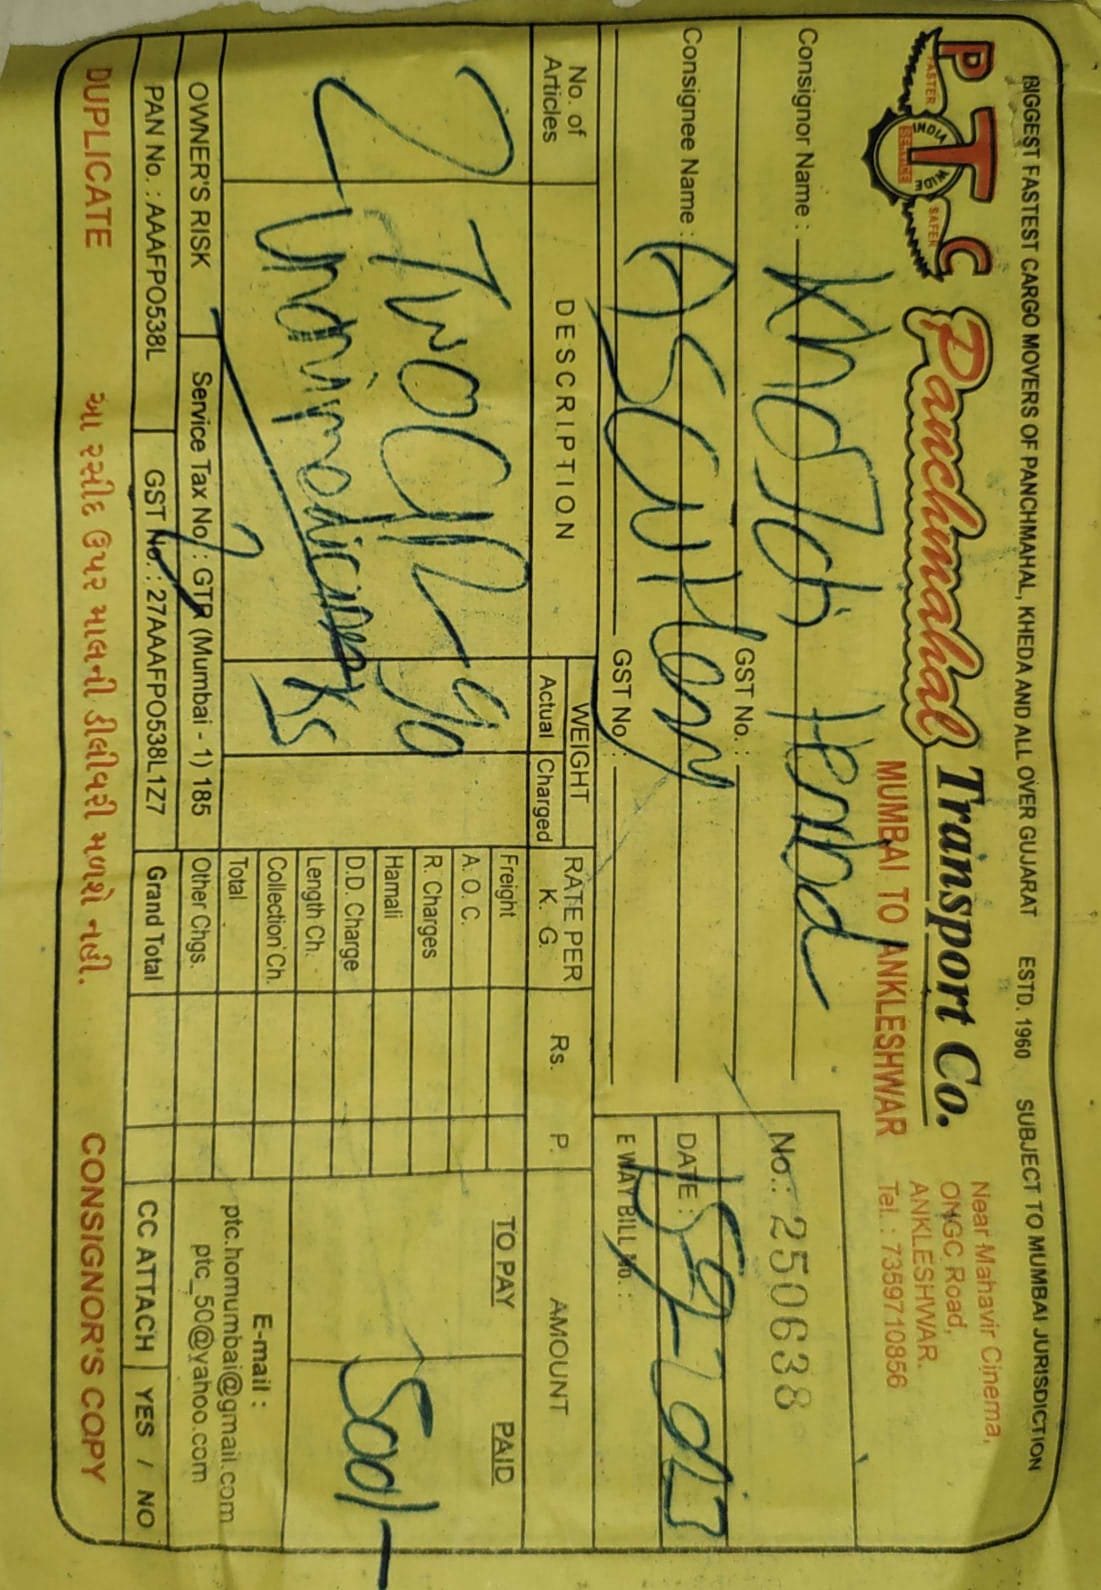 BIGGEST FASTEST CARGO MOVERS OF PANCHMAHAL, KHEDA AND ALL OVER GUJARAT ESTD. 1960 SUBJECT TO MUMBAI JURISDICTION
PTC
FASTER SAFER
INDIA WIDE
Panchmahal Transport Co.
MUMBAI TO ANKLESHWAR
Near Mahavir Cinema,
ONGC Road,
ANKLESHWAR.
Tel. : 7359710856
Consignor Name :
GST No. :
No.: 250638
Consignee Name :
GST No. :
DATE :
E WAY BILL No. :
No. of Articles
DESCRIPTION
WEIGHT
Actual Charged
RATE PER K. G.
Rs. P.
AMOUNT
TO PAY PAID
2 Two
90
Ks
500/-
Freight
A. O. C.
R. Charges
Hamali
D.D. Charge
Length Ch.
Collection Ch.
Total
Other Chgs.
Grand Total
E-mail :
ptc.homumbai@gmail.com
ptc_50@yahoo.com
OWNER'S RISK
Service Tax No. : GTR (Mumbai - 1) 185
PAN No. : AAAFPO538L
GST No. : 27AAAFPO538L1Z7
CC ATTACH YES / NO
DUPLICATE
આ રસીદ ઉપર માલની ડીલીવરી મળશે નહી.
CONSIGNOR'S COPY